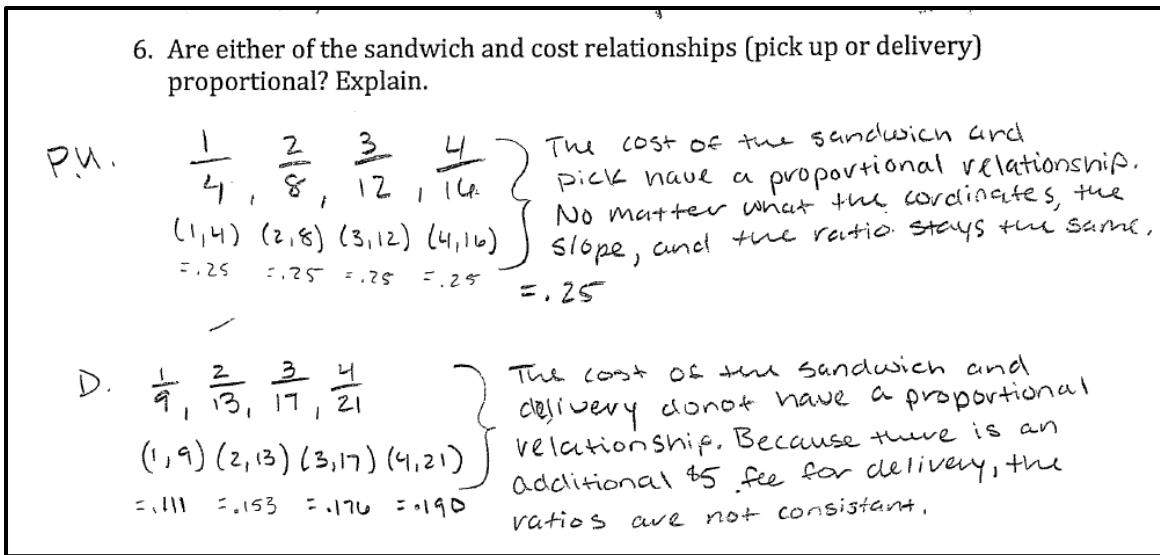 6. Are either of the sandwich and cost relationships (pick up or delivery)
proportional? Explain.
P.U. 1/4, 2/8, 3/12, 4/16
(1,4) (2,8) (3,12) (4,16)
=.25 =.25 =.25 =.25
The cost of the sandwich and
pick have a proportional relationship.
No matter what the cordinates, the
slope, and the ratio stays the same.
=.25
D. 1/9, 2/13, 3/17, 4/21
(1,9) (2,13) (3,17) (4,21)
=.111 =.153 =.176 =.190
The cost of the sandwich and
delivery donot have a proportional
relationship. Because there is an
additional $5 fee for delivery, the
ratios are not consistant.